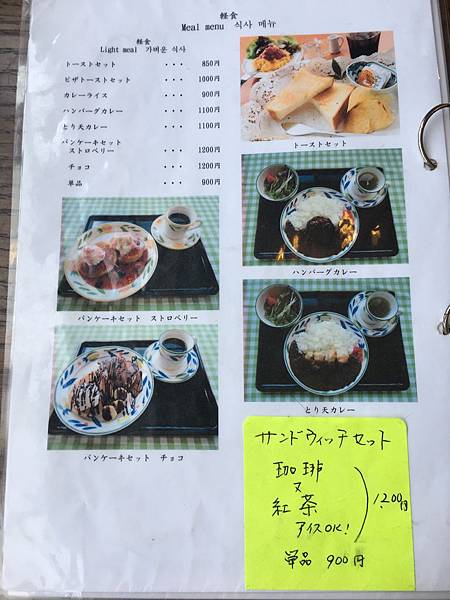 軽食
Meal menu 식사 메뉴
軽食
Light meal 가벼운 식사
トーストセット ・・・ 850円
ピザトーストセット ・・・ 1000円
カレーライス ・・・ 900円
ハンバーグカレー ・・・ 1100円
とり天カレー ・・・ 1100円
パンケーキセット
ストロベリー ・・・ 1200円
チョコ ・・・ 1200円
単品 ・・・ 900円
トーストセット
ハンバーグカレー
パンケーキセット ストロベリー
とり天カレー
パンケーキセット チョコ
サンドウィッチセット
珈琲
又
紅茶
アイスOK!
1,200円
単品 900円